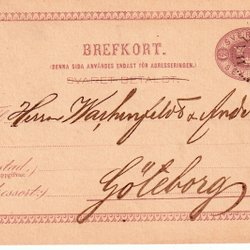 BREFKORT.
(DENNA SIDA ANVÄNDES ENDAST FÖR ADRESSERINGEN.)
SVARET BETALDT.
Herrar Wachenfeldt & Andr
Göteborg